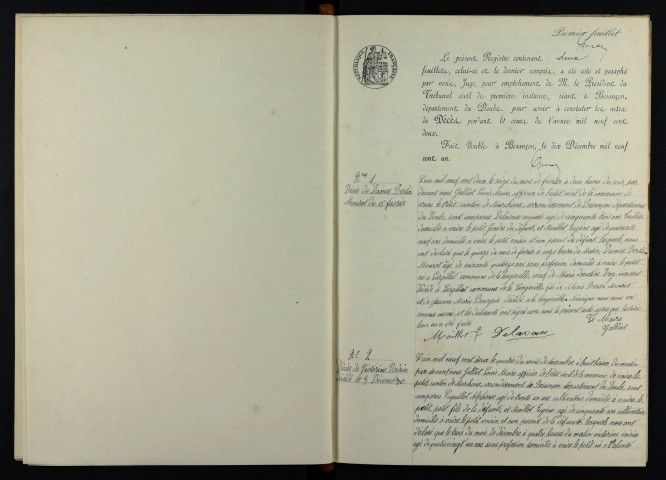 Premier feuillet
RÉPUBLIQUE FRANÇAISE
Le présent Registre contenant deux
feuillets, celui-ci et le dernier compris, a été coté et paraphé
par nous, Juge, pour empêchement de M. le Président du
Tribunal civil de première instance, séant à Besançon,
département du Doubs, pour servir à constater les actes
de Décès pendant le cours de l'année mil neuf cent
deux.
Fait double à Besançon, le dix Décembre mil neuf
cent un.
No 1
Décès de
Mourot du 15 février
L'an mil neuf cent deux le seize du mois de février à deux heures du soir par
devant nous Louis Marie officier de l'état civil de la commune de
vaire le Petit canton de Marchaux, arrondissement de Besançon département
du Doubs, sont comparus Delavaux auguste agé de cinquante trois ans
domicilié a vaire le petit gendre du défunt, et Maillot Eugène agé de quarante
neuf ans domicilié a vaire le petit voisin et non parent du défunt, lesquels nous
ont déclaré que le quinze du mois de février a onze heures du Matin
Mourot âgé de soixante quatorze ans sans profession domicilié a vaire le petit
né a commune de la Longeville, veuf de Marie
décédée à commune de la Longeville fils de
et de Jeanne Marie décédé a la longeville
sommes assuré, et les déclarants ont signé avec nous le présent acte après que lecture
leur en a été faite
Le Maire
Maillot E Delavaux
No 2
Décès de Victorine
décédée le 3 Décembre
L'an mil neuf cent deux le quatre du mois de décembre a huit heures du matin
par devant nous Louis Marie officier de l'état civil de la commune de vaire le
petit, canton de Marchaux, arrondissement de Besançon département du Doubs, sont
comparus Alphonse agé de trente un ans, cultivateur domicilié a vaire le
petit, petit fils de la défunte, et Maillot Eugène agé de cinquante ans cultivateur
domicilié a vaire le petit voisin, et non parent de la défunte, lesquels nous ont
déclaré que le trois du mois de décembre à quatre heures du matin victorine
agé de quatre vingt un ans sans profession domicilié a vaire le petit né a